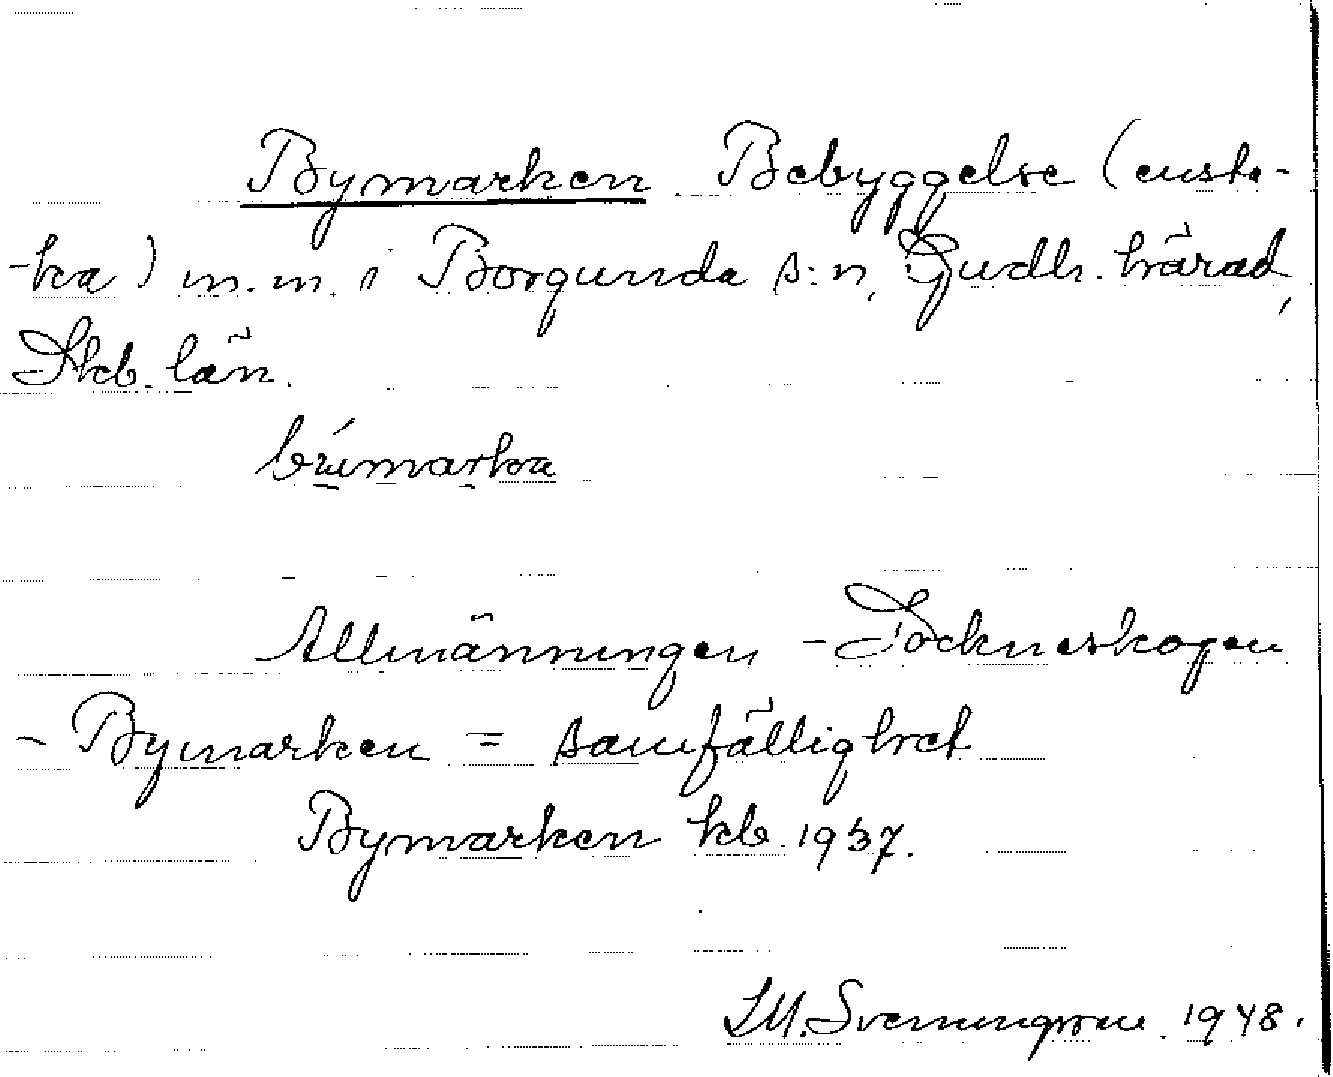 Bymarken Bebyggelse (ensta-
-ka) m.m. i Borgunda s:n, Gudh. härad,
Skb. län.
Allmänningen - Tockneskogen
- Bymarken = samfällighet
Bymarken kb 1937.
S.M. Svenningsson 1948.